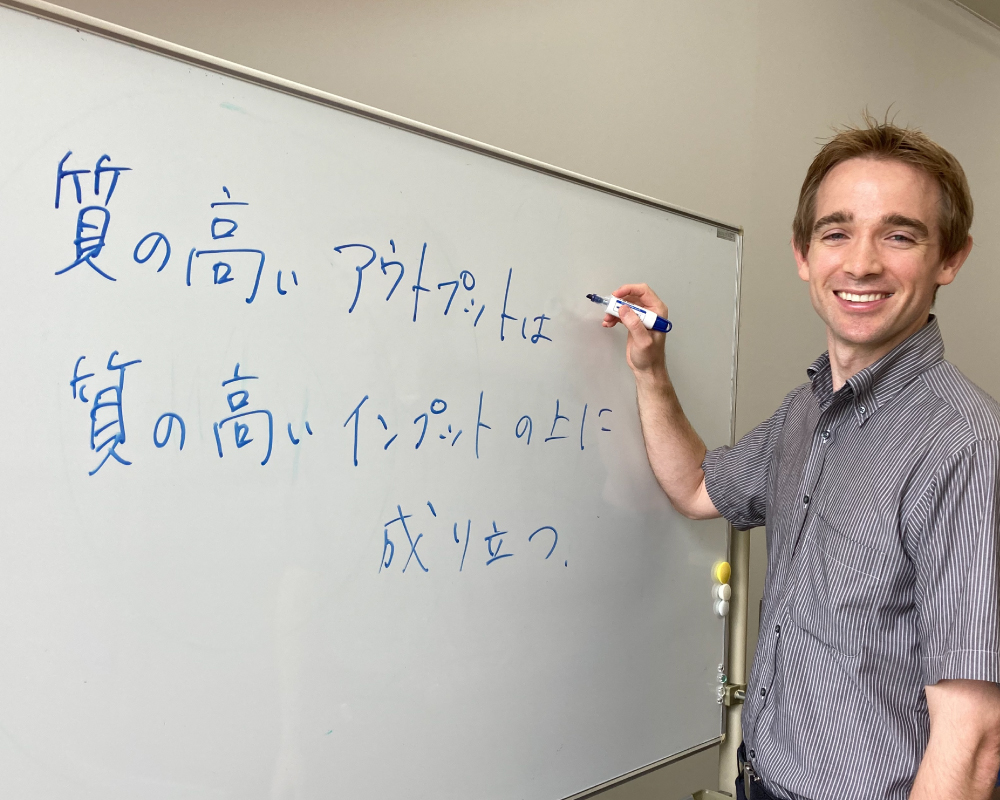 質の高いアウトプットは
質の高いインプットの上に
成り立つ.